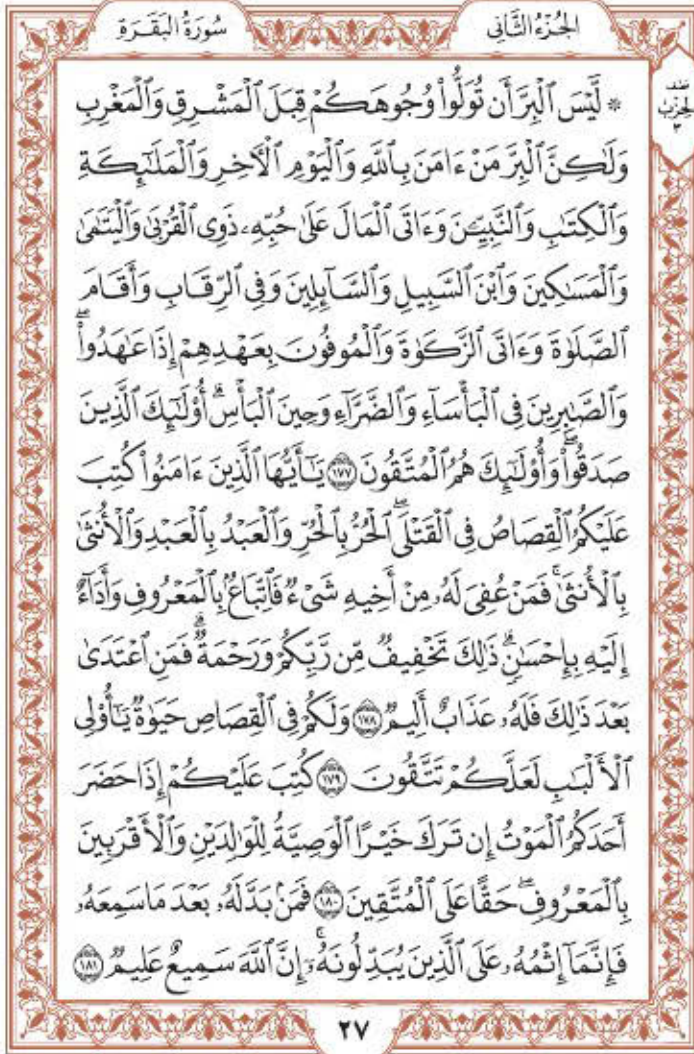 سُورَةُ الْبَقَرَةِ
الجُزْءُ الثَّانِي
نصف
الحزب
٣
۞ لَّيْسَ ٱلْبِرَّ أَن تُوَلُّوا۟ وُجُوهَكُمْ قِبَلَ ٱلْمَشْرِقِ وَٱلْمَغْرِبِ
وَلَٰكِنَّ ٱلْبِرَّ مَنْ ءَامَنَ بِٱللَّهِ وَٱلْيَوْمِ ٱلْـَٔاخِرِ وَٱلْمَلَٰٓئِكَةِ
وَٱلْكِتَٰبِ وَٱلنَّبِيِّـۧنَ وَءَاتَى ٱلْمَالَ عَلَىٰ حُبِّهِۦ ذَوِى ٱلْقُرْبَىٰ وَٱلْيَتَٰمَىٰ
وَٱلْمَسَٰكِينَ وَٱبْنَ ٱلسَّبِيلِ وَٱلسَّآئِلِينَ وَفِى ٱلرِّقَابِ وَأَقَامَ
ٱلصَّلَوٰةَ وَءَاتَى ٱلزَّكَوٰةَ وَٱلْمُوفُونَ بِعَهْدِهِمْ إِذَا عَٰهَدُوا۟ۖ
وَٱلصَّٰبِرِينَ فِى ٱلْبَأْسَآءِ وَٱلضَّرَّآءِ وَحِينَ ٱلْبَأْسِۗ أُو۟لَٰٓئِكَ ٱلَّذِينَ
صَدَقُوا۟ۖ وَأُو۟لَٰٓئِكَ هُمُ ٱلْمُتَّقُونَ ١٧٧ يَٰٓأَيُّهَا ٱلَّذِينَ ءَامَنُوا۟ كُتِبَ
عَلَيْكُمُ ٱلْقِصَاصُ فِى ٱلْقَتْلَىۖ ٱلْحُرُّ بِٱلْحُرِّ وَٱلْعَبْدُ بِٱلْعَبْدِ وَٱلْأُنثَىٰ
بِٱلْأُنثَىٰۚ فَمَنْ عُفِىَ لَهُۥ مِنْ أَخِيهِ شَىْءٌ فَٱتِّبَاعٌۢ بِٱلْمَعْرُوفِ وَأَدَآءٌ
إِلَيْهِ بِإِحْسَٰنٍۗ ذَٰلِكَ تَخْفِيفٌ مِّن رَّبِّكُمْ وَرَحْمَةٌۗ فَمَنِ ٱعْتَدَىٰ
بَعْدَ ذَٰلِكَ فَلَهُۥ عَذَابٌ أَلِيمٌ ١٧٨ وَلَكُمْ فِى ٱلْقِصَاصِ حَيَوٰةٌ يَٰٓأُو۟لِى
ٱلْأَلْبَٰبِ لَعَلَّكُمْ تَتَّقُونَ ١٧٩ كُتِبَ عَلَيْكُمْ إِذَا حَضَرَ
أَحَدَكُمُ ٱلْمَوْتُ إِن تَرَكَ خَيْرًا ٱلْوَصِيَّةُ لِلْوَٰلِدَيْنِ وَٱلْأَقْرَبِينَ
بِٱلْمَعْرُوفِۖ حَقًّا عَلَى ٱلْمُتَّقِينَ ١٨٠ فَمَنۢ بَدَّلَهُۥ بَعْدَ مَا سَمِعَهُۥ
فَإِنَّمَآ إِثْمُهُۥ عَلَى ٱلَّذِينَ يُبَدِّلُونَهُۥٓۚ إِنَّ ٱللَّهَ سَمِيعٌ عَلِيمٌ ١٨١
٢٧